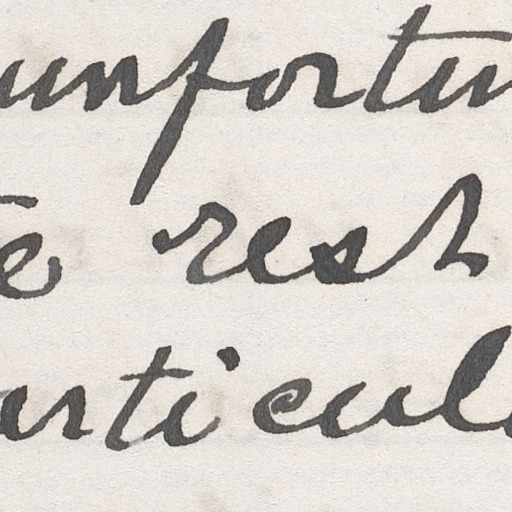 unfortun
te rest
articul